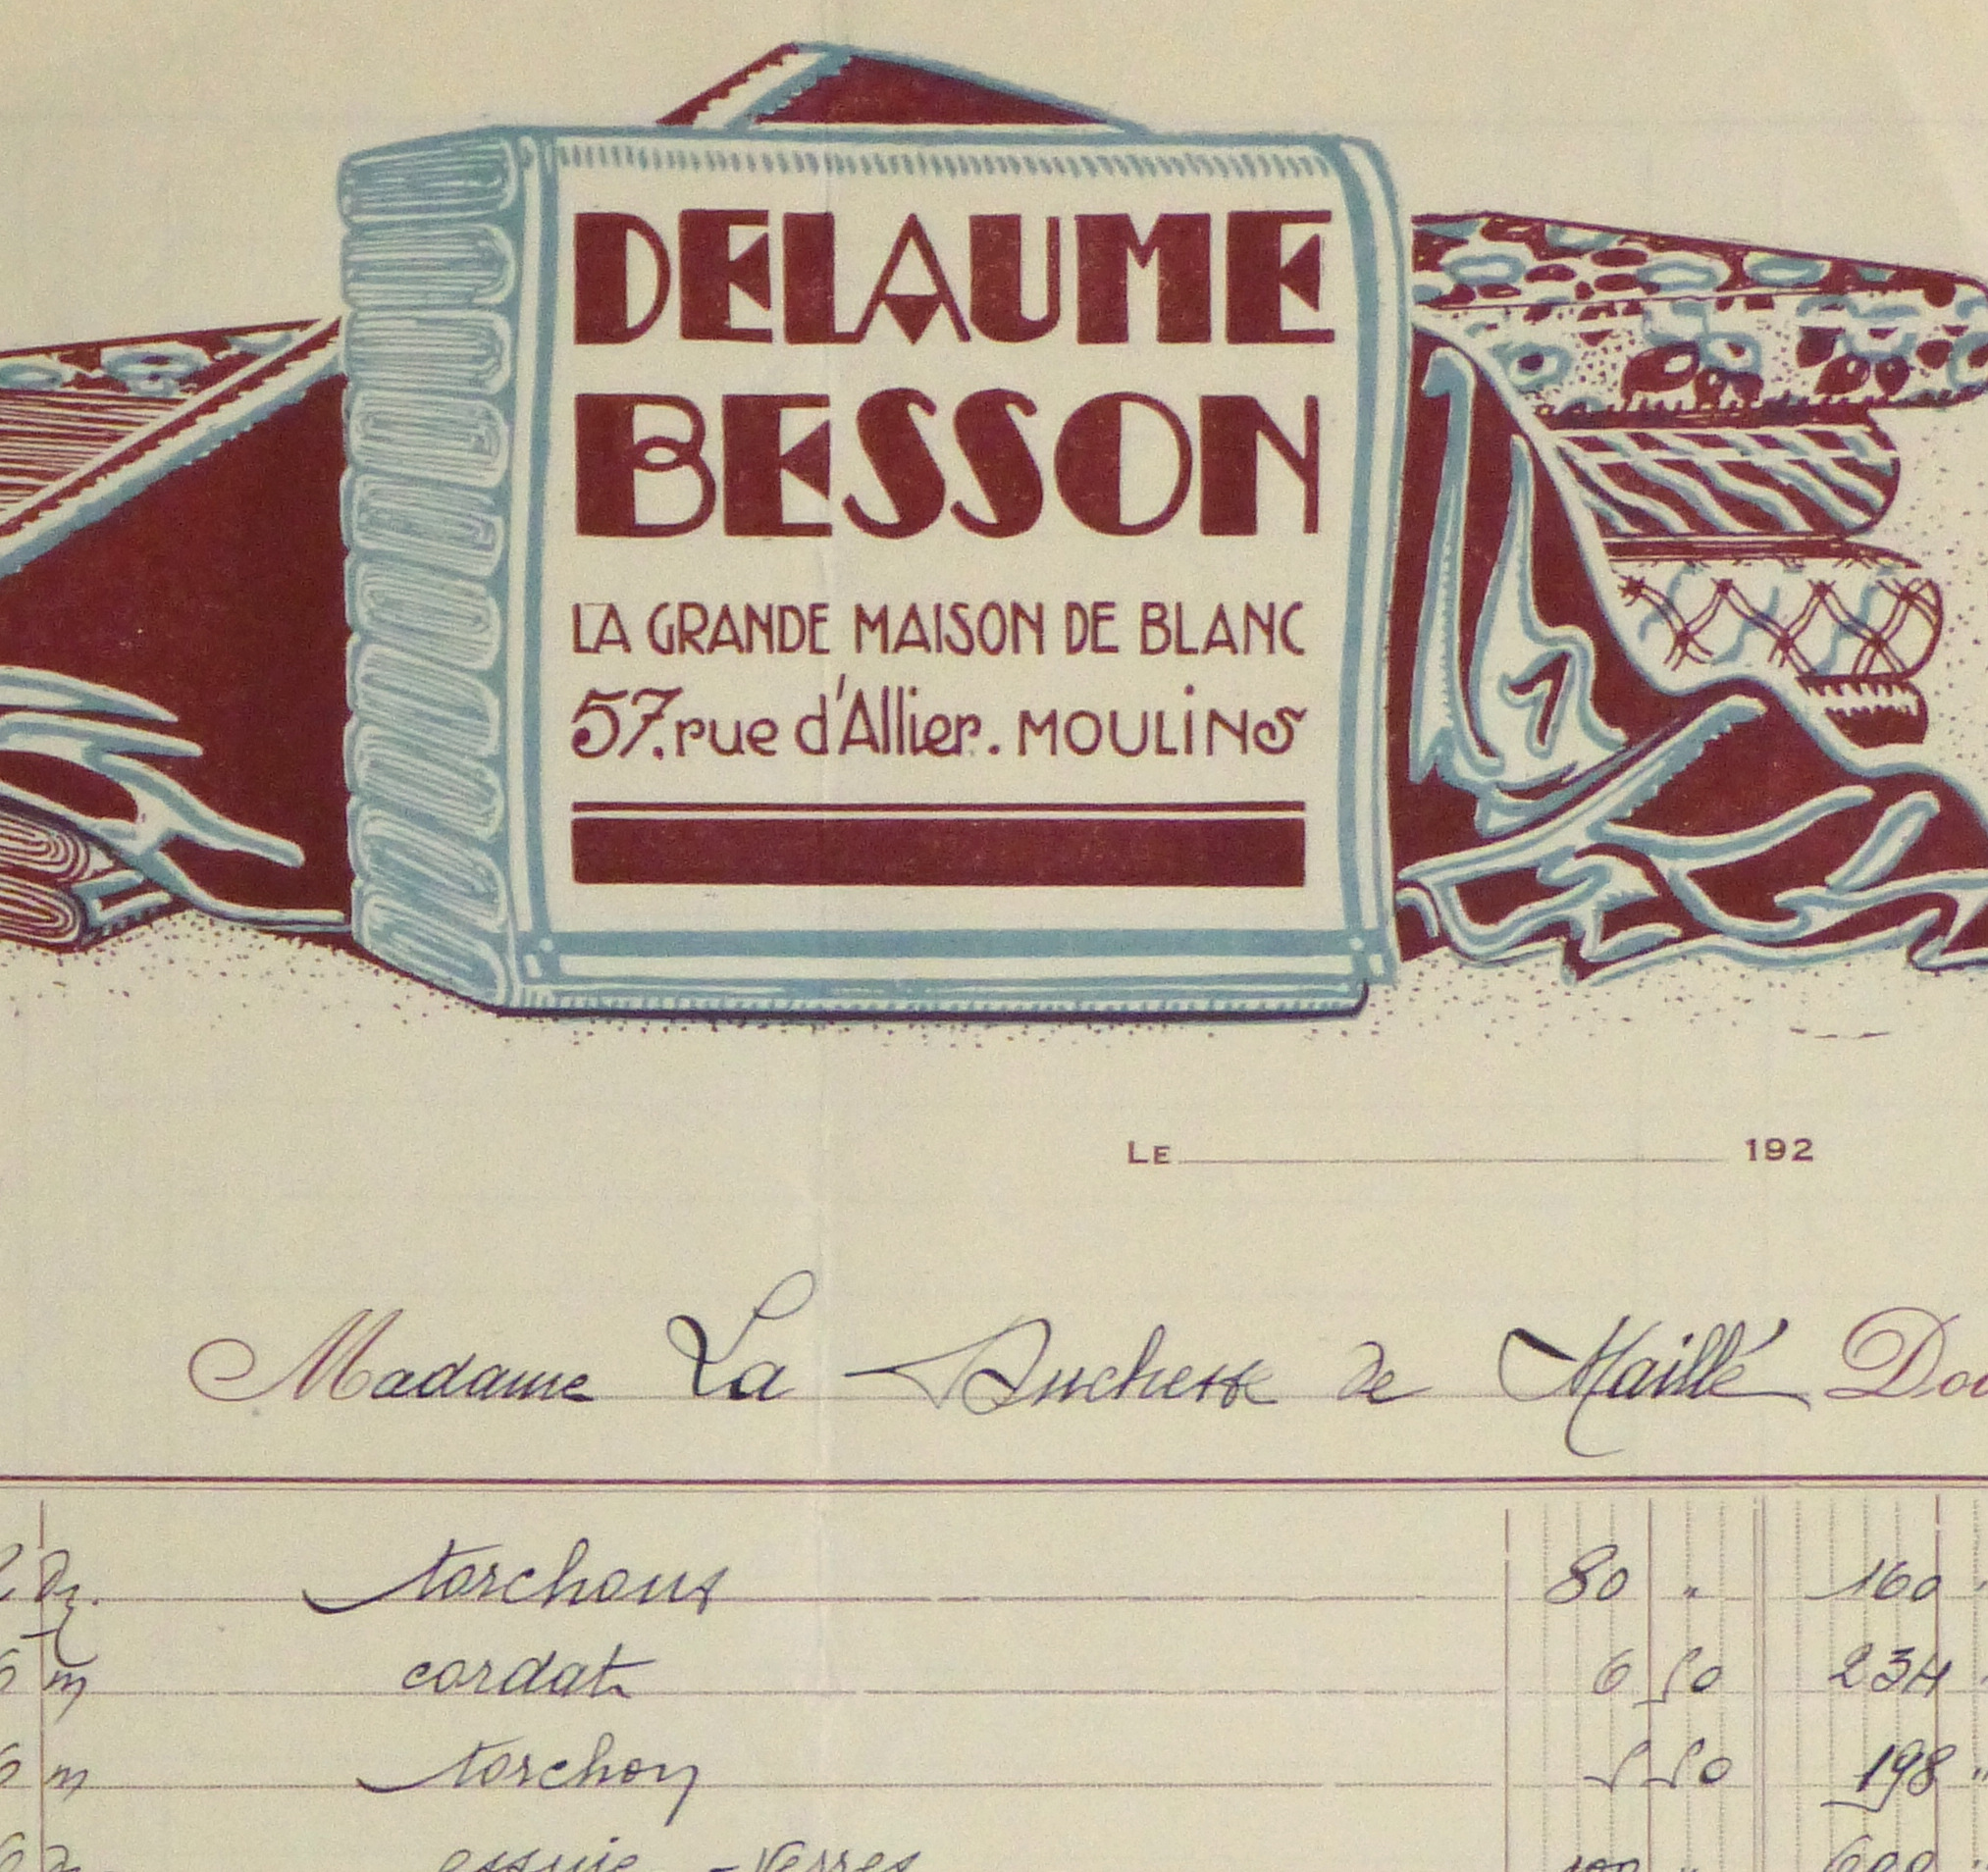 DELAUME
BESSON
LA GRANDE MAISON DE BLANC
57.rue d'Allier. MOULINS
LE 192
Madame La Duchesse de Maillé Doi
2 Dz. torchons 80 " 160 "
6 m cordat 6 50 234 "
6 m torchon 5 50 198 "
6 essuie-verres 100 " 600